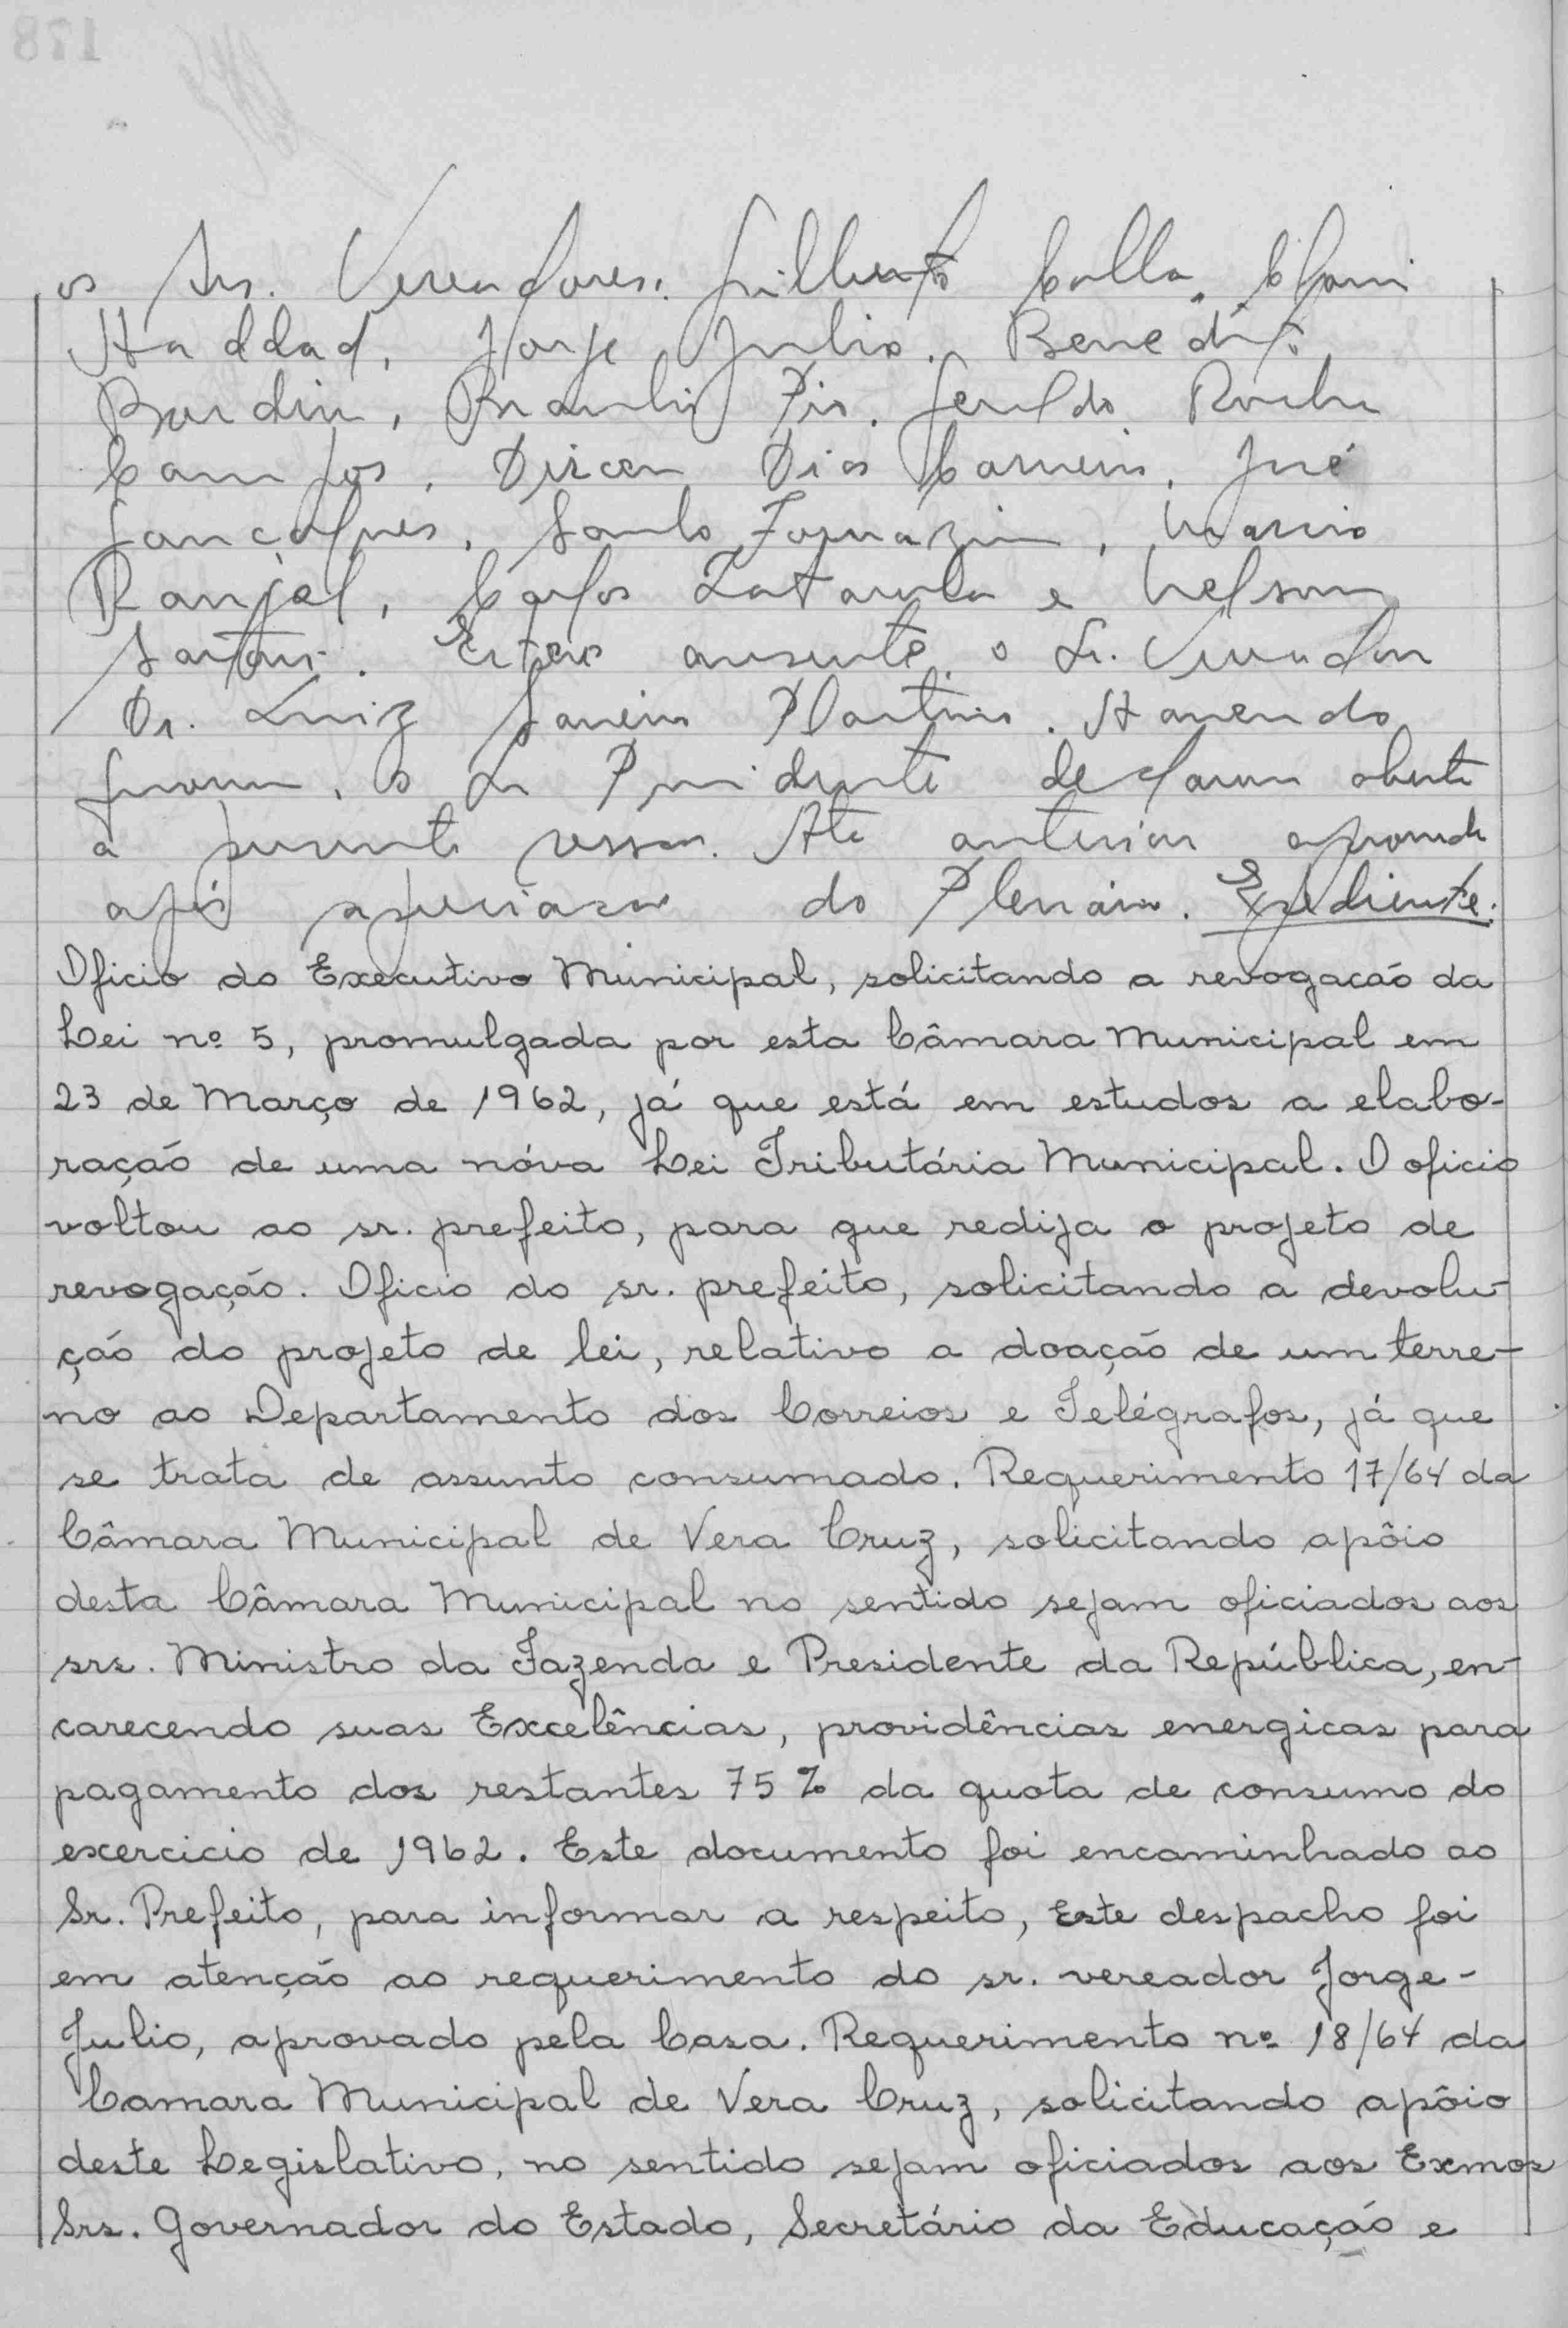 os Srs. Vereadores: Gilberto Colla,
Haddad, Jorge Julio, Benedito
Bordin, Braulio Pio, Geraldo Rocha
Campos, Dirceu Dias Carneiro, José
Gonçalves, Santo Fornazin, Marcio
Ranjel, Carlos e Nelson
. Esteve ausente o Sr. Vereador
Dr. Luiz Martins. Havendo
, o Sr Presidente declarou aberta
a presente sessão. Ata anterior aprovada
após apreciação do Plenário. Expediente:
Oficio do Executivo Municipal, solicitando a revogacão da
Lei nº 5, promulgada por esta Câmara Municipal em
23 de Março de 1962, já que está em estudos a elabo-
ração de uma nóva Lei Tributária Municipal. O oficio
voltou ao sr. prefeito, para que redija o projeto de
revogação. Oficio do sr. prefeito, solicitando a devolu-
ção do projeto de lei, relativo a doação de um terre-
no ao Departamento dos Correios e Telégrafos, já que
se trata de assunto consumado. Requerimento 17/64 da
Câmara Municipal de Vera Cruz, solicitando apôio
desta Câmara Municipal no sentido sejam oficiados aos
srs. Ministro da Fazenda e Presidente da República, en-
carecendo suas Excelências, providências energicas para
pagamento dos restantes 75% da quota de consumo do
exercicio de 1962. Este documento foi encaminhado ao
Sr. Prefeito, para informar a respeito, Este despacho foi
em atenção ao requerimento do sr. vereador Jorge-
Julio, aprovado pela Casa. Requerimento nº 18/64 da
Camara Municipal de Vera Cruz, solicitando apôio
deste Legislativo, no sentido sejam oficiados aos Exmos
Srs. Governador do Estado, Secretário da Educação e